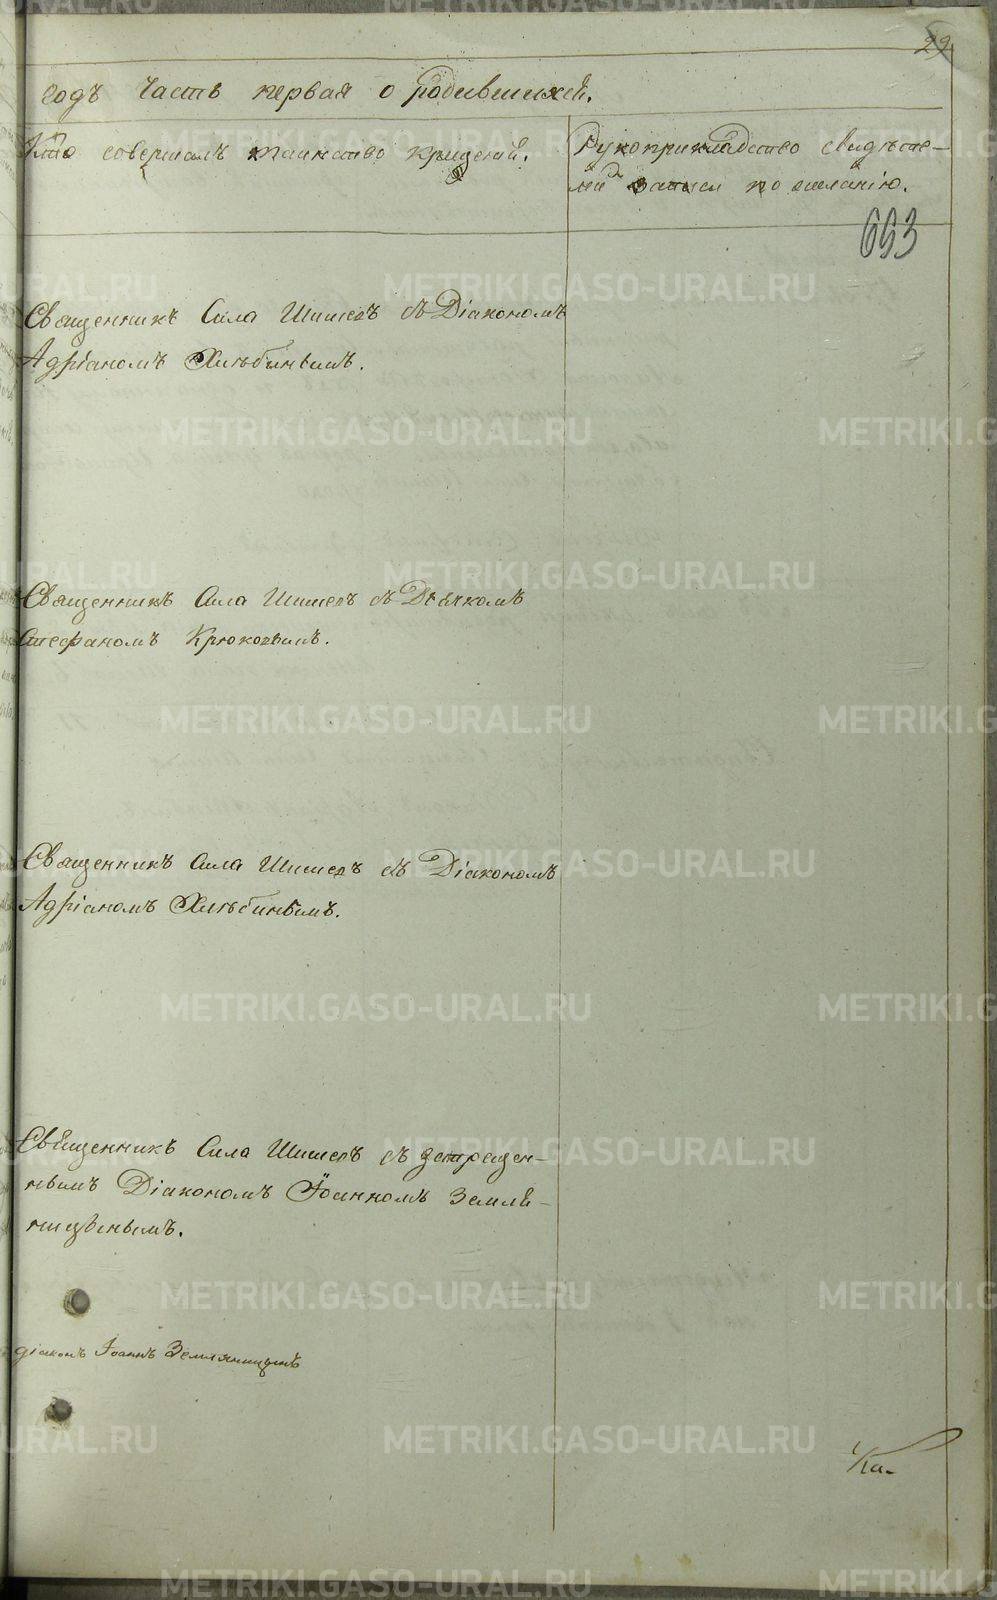 29
годъ часть первая о родившихся.
Кто совершалъ таинство крещенія.
Рукоприкладство свидѣте-
лей записи по желанію.
693
Священникъ Сила Шишевъ съ Діакономъ
Адріаномъ Хлѣбинымъ.
Священникъ Сила Шишевъ съ Дьячкомъ
Стефаномъ Крюковымъ.
Священникъ Сила Шишевъ съ Діакономъ
Адріаномъ Хлѣбинымъ.
Священникъ Сила Шишевъ съ
Діакономъ Іоанномъ Земля-
ницынымъ.
діаконъ Іоаннъ Земляницынъ
METRIKI.GASO-URAL.RU